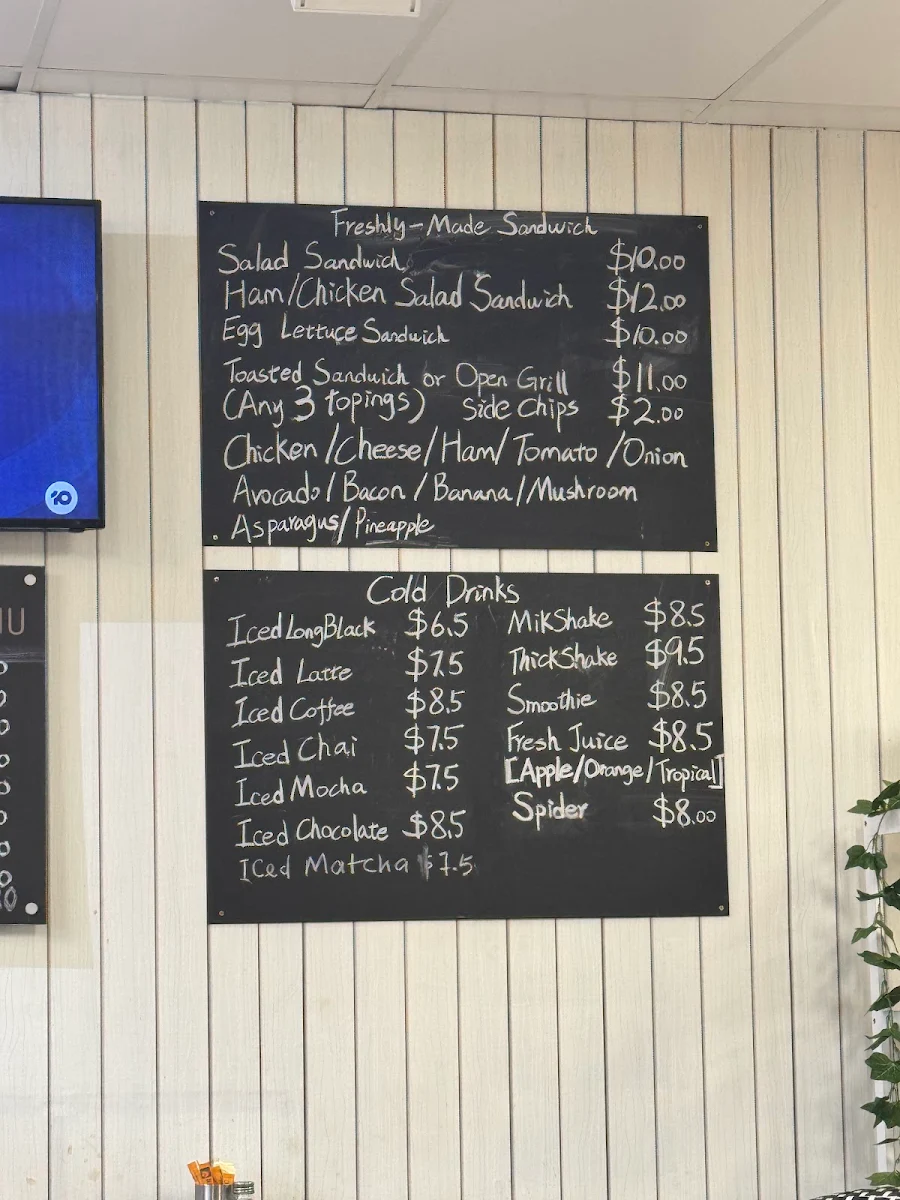 Freshly-Made Sandwich
Salad Sandwich $10.00
Ham/Chicken Salad Sandwich $12.00
Egg Lettuce Sandwich $10.00
Toasted Sandwich or Open Grill $11.00
(Any 3 topings) Side Chips $2.00
Chicken/Cheese/Ham/Tomato/Onion
Avocado/Bacon/Banana/Mushroom
Asparagus/Pineapple
Cold Drinks
Iced LongBlack $6.5
Iced Latte $7.5
Iced Coffee $8.5
Iced Chai $7.5
Iced Mocha $7.5
Iced Chocolate $8.5
Iced Matcha $7.5
MilkShake $8.5
ThickShake $9.5
Smoothie $8.5
Fresh Juice $8.5
[Apple/Orange/Tropical]
Spider $8.00
10